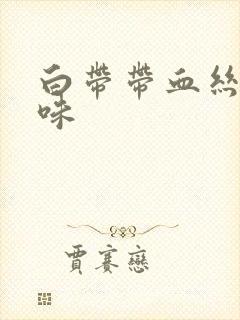 白带带血絲
味
賈賽戀